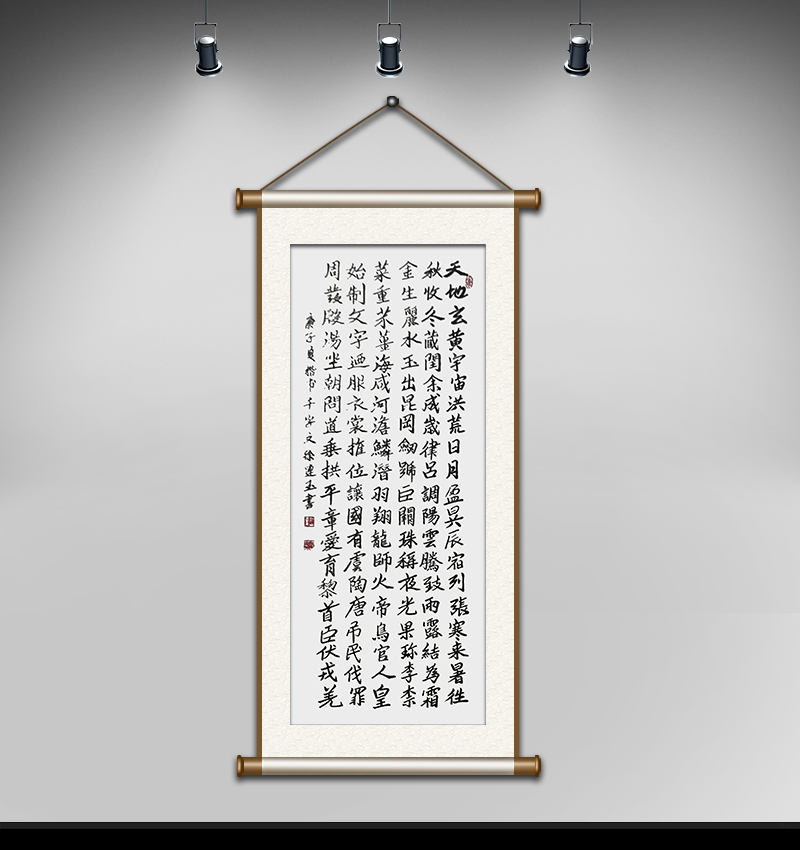 天地玄黄宇宙洪荒日月盈昃辰宿列張寒来暑往
秋收冬蔵閏余成歲律呂調陽雲騰致雨露結為霜
金生麗水玉出昆岡劒號巨闕珠稱夜光果珍李柰
菜重芥薑海咸河澹鱗潛羽翔龍師火帝鳥官人皇
始制文字廼服衣裳推位讓國有虞陶唐吊民伐罪
周發殷湯坐朝問道垂拱平章愛育黎首臣伏戎羌
庚子夏楷书千字文徐玉書